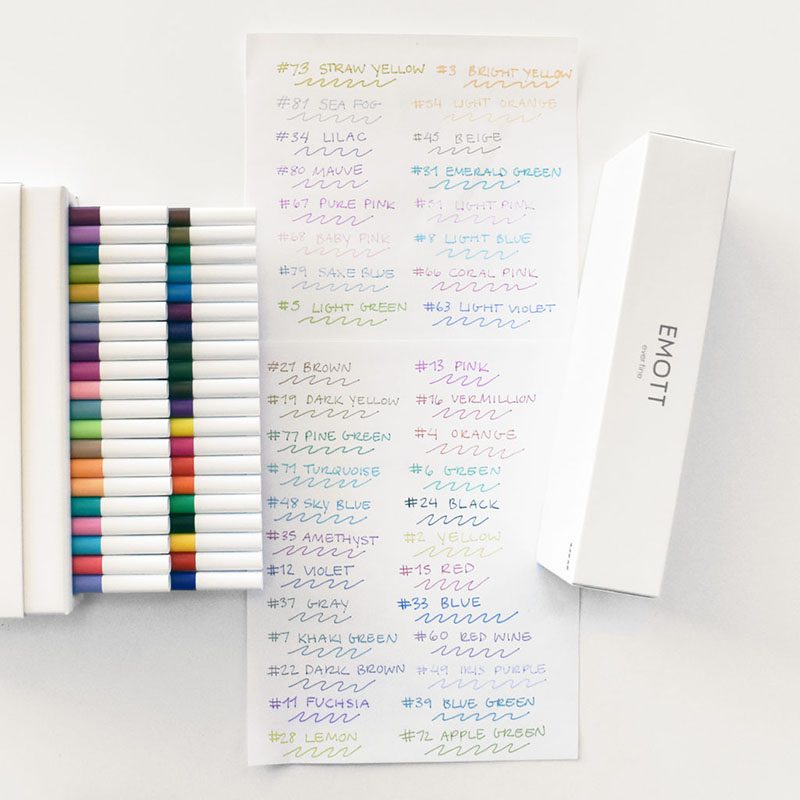 #73 STRAW YELLOW #3 BRIGHT YELLOW
#81 SEA FOG #54 LIGHT ORANGE
#34 LILAC #45 BEIGE
#80 MAUVE #31 EMERALD GREEN
#67 PURE PINK #51 LIGHT PINK
#68 BABY PINK #8 LIGHT BLUE
#79 SAXE BLUE #66 CORAL PINK
#5 LIGHT GREEN #63 LIGHT VIOLET
#21 BROWN #13 PINK
#19 DARK YELLOW #16 VERMILLION
#77 PINE GREEN #4 ORANGE
#71 TURQUOISE #6 GREEN
#48 SKY BLUE #24 BLACK
#35 AMETHYST #2 YELLOW
#12 VIOLET #15 RED
#37 GRAY #33 BLUE
#7 KHAKI GREEN #60 RED WINE
#22 DARK BROWN #49 IRIS PURPLE
#11 FUCHSIA #39 BLUE GREEN
#28 LEMON #72 APPLE GREEN
EMOTT
ever fine